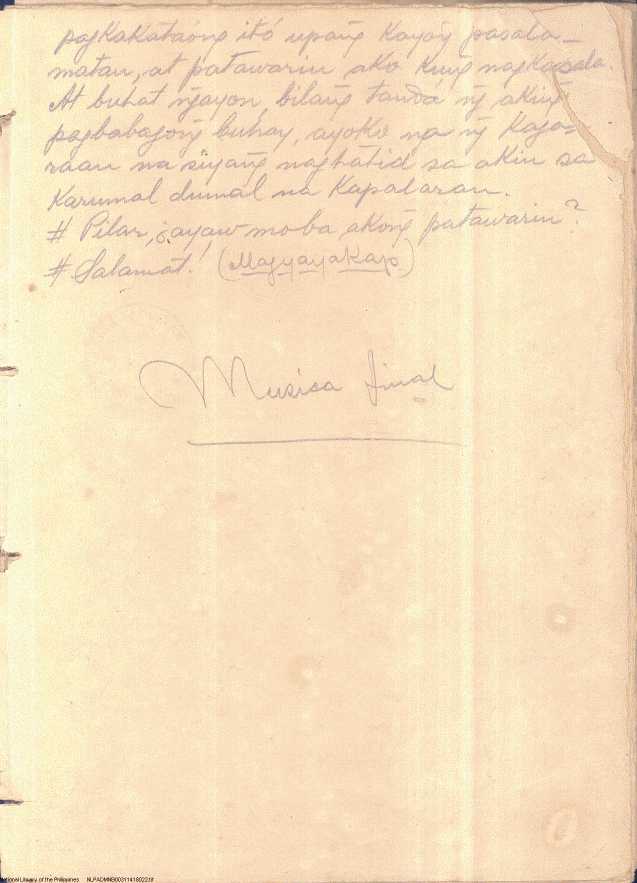 pagkakataong itó upang kayo'y pasala-
matan, at patawarin ako kung nagkasala.
At buhat ngayon, bilang tanda ng aking
pagbabagong buhay, ayoko na ng kaga-
raan na siyang naghatid sa akin sa
karumal dumal na kapalaran.
# Pilar, ¿ayaw mo ba akong patawarin?
# Salamat! (Magyayakap)
Musica final
National Library of the Philippines NLPADMNB00311418022.tif